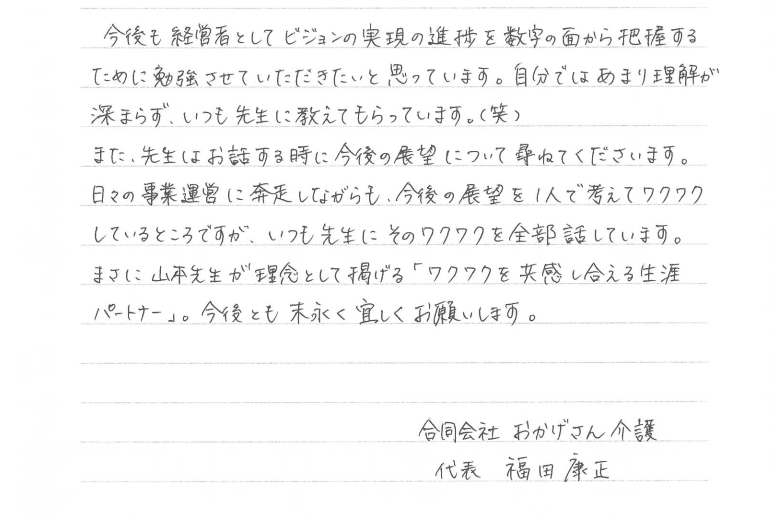 今後も経営者としてビジョンの実現の進捗を数字の面から把握する
ために勉強させていただきたいと思っています。自分ではあまり理解が
深まらず、いつも先生に教えてもらっています。(笑)
また、先生はお話する時に今後の展望について尋ねてくださいます。
日々の事業運営に奔走しながらも、今後の展望を1人で考えてワクワク
しているところですが、いつも先生にそのワクワクを全部話しています。
まさに山本先生が理念として掲げる「ワクワクを共感し合える生涯
パートナー」。今後とも末永く宜しくお願いします。
合同会社 おかげさん介護
代表 福田康正